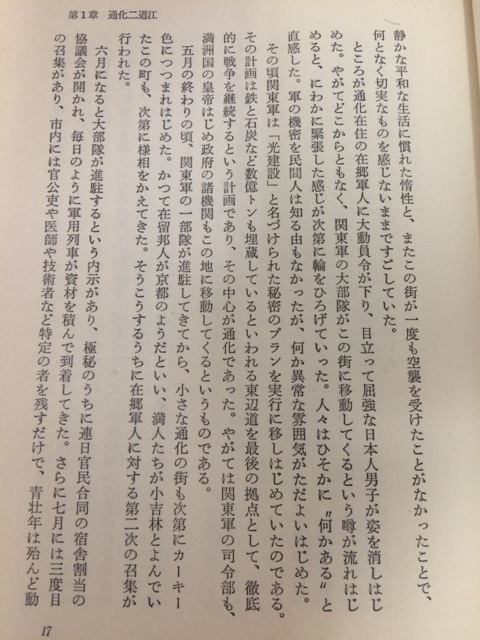 第1章　通化二道江
静かな平和な生活に慣れた惰性と、またこの街が一度も空襲を受けたことがなかったことで、
何となく切実なものを感じないままですごしていた。
ところが通化在住の在郷軍人に大動員令が下り、目立って屈強な日本人男子が姿を消しはじ
めた。やがてどこからともなく、関東軍の大部隊がこの街に移動してくるという噂が流れはじ
めると、にわかに緊張した感じが次第に輪をひろげていった。人々はひそかに〝何かある〟と
直感した。軍の機密を民間人は知る由もなかったが、何か異常な雰囲気がただよいはじめた。
その頃関東軍は「光建設」と名づけられた秘密のプランを実行に移しはじめていたのである。
その計画は鉄と石炭など数億トンも埋蔵しているといわれる東辺道を最後の拠点として、徹底
的に戦争を継続するという計画であり、その中心が通化であった。やがては関東軍の司令部も、
満洲国の皇帝はじめ政府の諸機関もこの地に移動してくるというものである。
五月の終わりの頃、関東軍の一部隊が進駐してきてから、小さな通化の街も次第にカーキー
色につつまれはじめた。かつて在留邦人が京都のようだといい、満人たちが小吉林とよんでい
たこの町も、次第に様相をかえてきた。そうこうするうちに在郷軍人に対する第二次の召集が
行われた。
六月になると大部隊が進駐するという内示があり、極秘のうちに連日官民合同の宿舎割当の
協議会が開かれ、毎日のように軍用列車が資材を積んで到着してきた。さらに七月には三度目
の召集があり、市内には官公吏や医師や技術者など特定の者を残すだけで、青壮年は殆んど動
17